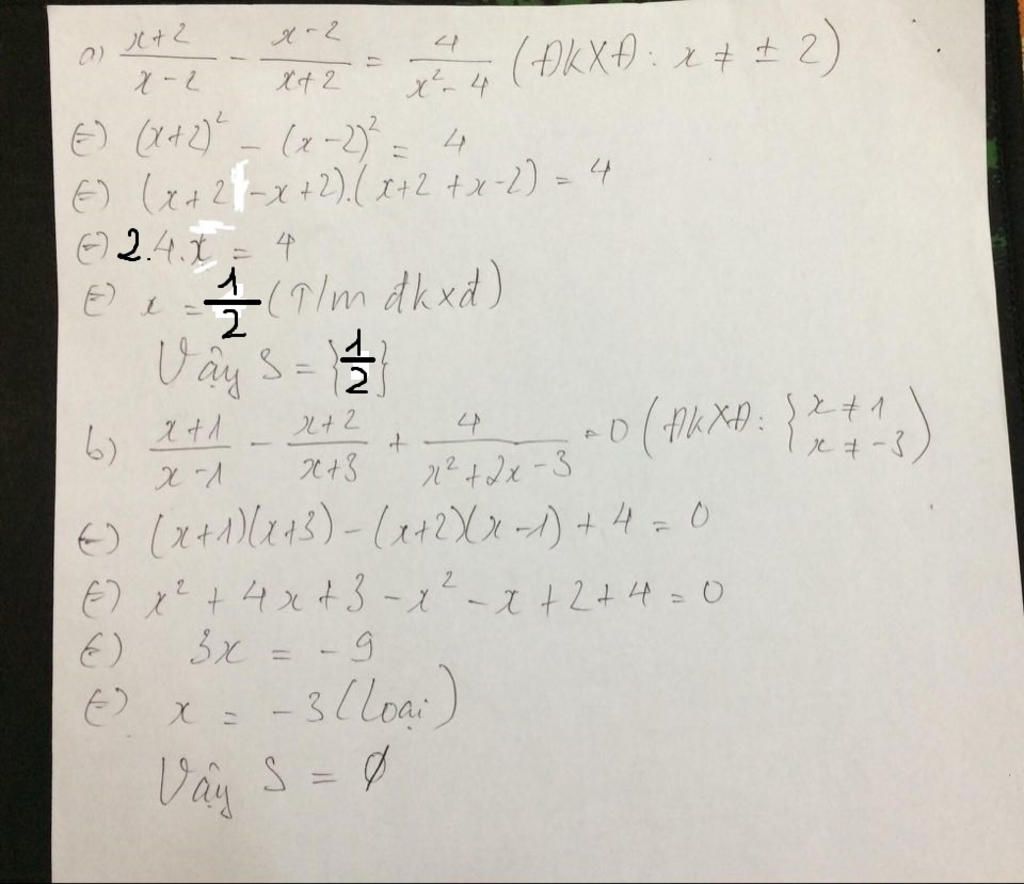 a) (x+2)/(x-2) - (x-2)/(x+2) = 4/(x²-4) (ĐKXĐ: x ≠ ± 2)
⇔) (x+2)² - (x-2)² = 4
⇔) (x+2-x+2).(x+2+x-2) = 4
⇔) 2.4.x = 4
⇔) x = 1/2 (T/m đkxđ)
Vậy S = {1/2}
b) (x+1)/(x-1) - (x+2)/(x+3) + 4/(x²+2x-3) = 0 (ĐKXĐ: { x ≠ 1 x ≠ -3)
⇔) (x+1)(x+3) - (x+2)(x-1) + 4 = 0
⇔) x² + 4x + 3 - x² - x + 2 + 4 = 0
⇔) 3x = -9
⇔) x = -3 (Loại)
Vậy S = Ø